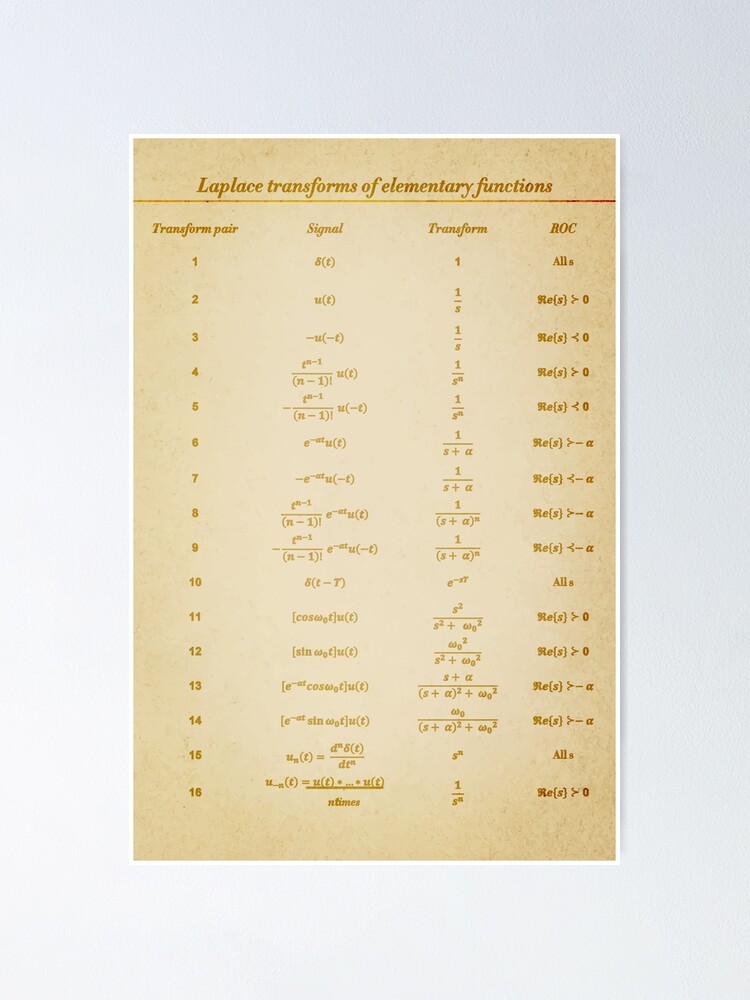 Laplace transforms of elementary functions
Transform pair Signal Transform ROC
1 δ(t) 1 All s
2 u(t) 1/s ℜe{s} ≻ 0
3 −u(−t) 1/s ℜe{s} ≺ 0
4 t^{n−1}/(n − 1)! u(t) 1/s^n ℜe{s} ≻ 0
5 −t^{n−1}/(n − 1)! u(−t) 1/s^n ℜe{s} ≺ 0
6 e^{−αt}u(t) 1/(s + α) ℜe{s} ≻ − α
7 −e^{−αt}u(−t) 1/(s + α) ℜe{s} ≺ − α
8 t^{n−1}/(n − 1)! e^{−αt}u(t) 1/(s + α)^n ℜe{s} ≻ − α
9 −t^{n−1}/(n − 1)! e^{−αt}u(−t) 1/(s + α)^n ℜe{s} ≺ − α
10 δ(t − T) e^{−sT} All s
11 [cosω₀t]u(t) s²/(s² + ω₀²) ℜe{s} ≻ 0
12 [sin ω₀t]u(t) ω₀²/(s² + ω₀²) ℜe{s} ≻ 0
13 [e^{−αt}cosω₀t]u(t) (s + α)/((s + α)² + ω₀²) ℜe{s} ≻ − α
14 [e^{−αt} sin ω₀t]u(t) ω₀/((s + α)² + ω₀²) ℜe{s} ≻ − α
15 uₙ(t) = dⁿδ(t)/dtⁿ sⁿ All s
16 u₋ₙ(t) = u(t) ∗ … ∗ u(t) 1/s^n ℜe{s} ≻ 0
ntimes